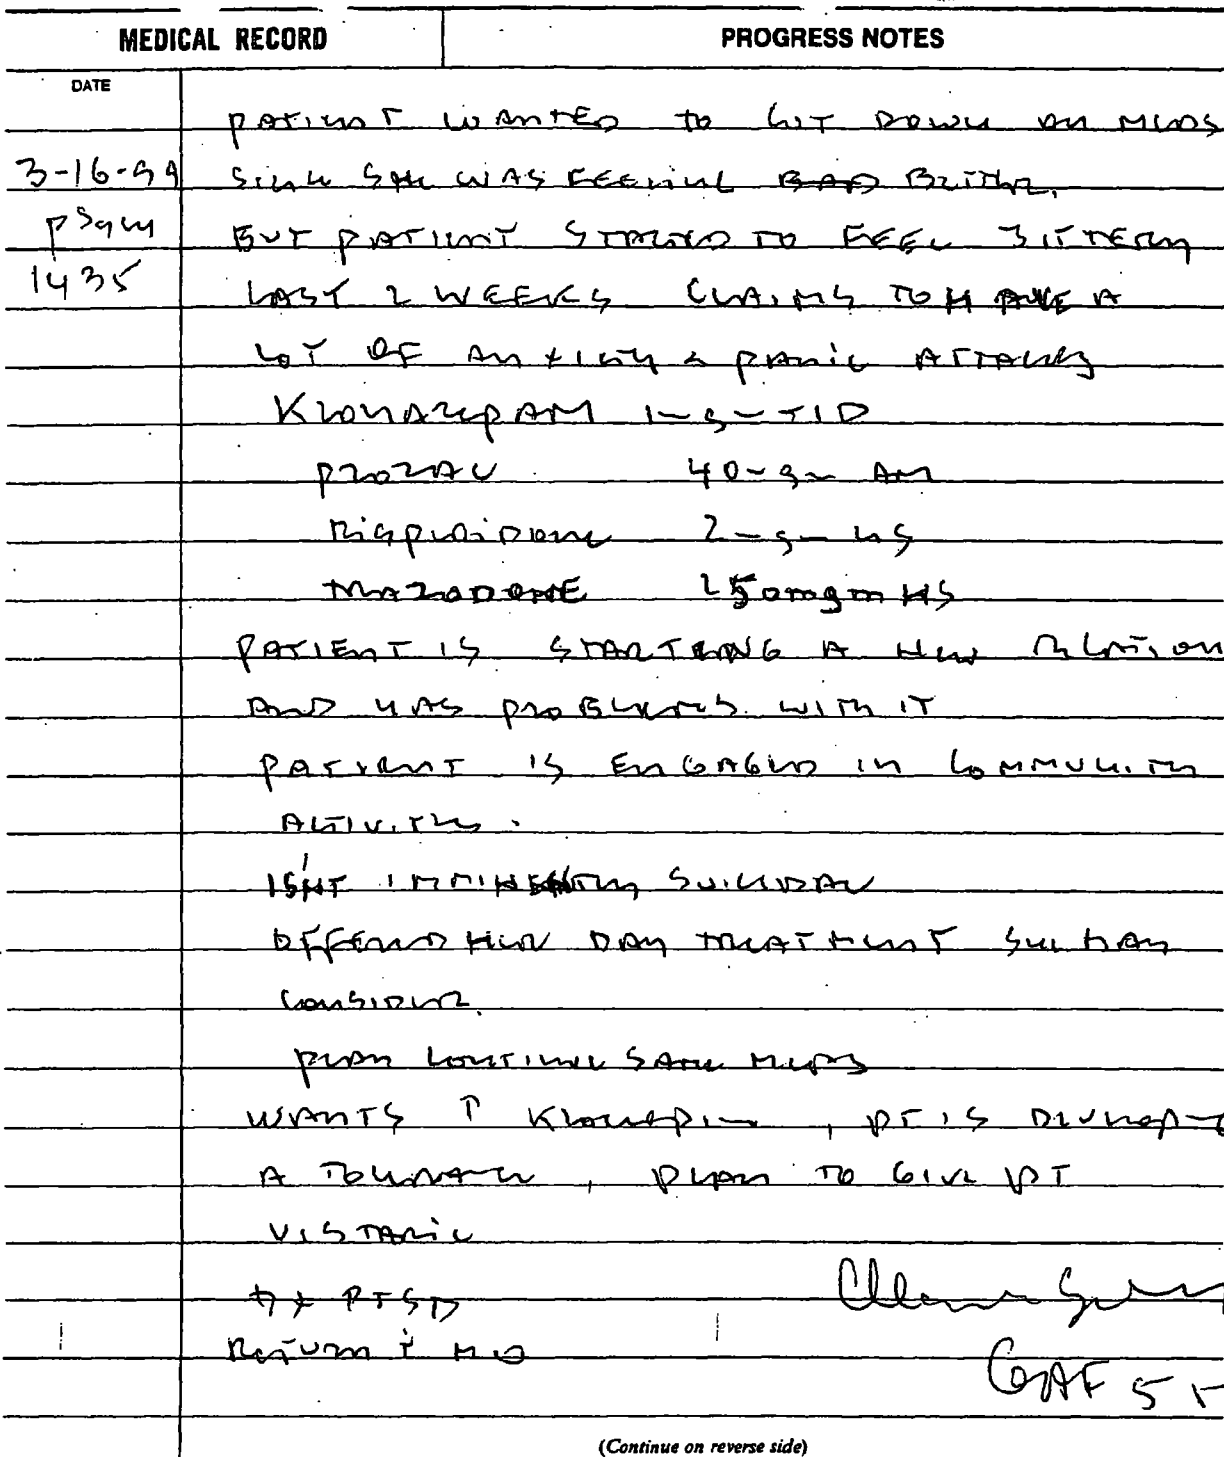 MEDICAL RECORD PROGRESS NOTES
DATE
PATIENT WANTED TO CUT DOWN ON MEDS
3-16-99 SINCE SHE WAS FEELING BAD BETTER.
PSYCH BUT PATIENT STARTED TO FEEL JITTERY
1435 LAST 2 WEEKS CLAIMS TO HAVE A
LOT OF ANXIETY & PANIC ATTACKS
KLONAZEPAM 1-g-TID
PROZAC 40-g- AM
RISPERIDONE 2-g- HS
TRAZODONE 150mgm HS
PATIENT IS STARTING A NEW RELATION
AND HAS PROBLEMS WITH IT
PATIENT IS ENGAGED IN COMMUNITY
ACTIVITIES.
ISN'T IMMINENTLY SUICIDAL
OFFERED HER DAY TREATMENT SHE MAY
CONSIDER.
PLAN CONTINUE SAME MEDS
WANTS ↑ KLONOPIN, PT IS
A TOLERANCE, PLAN TO GIVE PT
VISTARIL
DX PTSD
RETURN 1 MO
GAF 55
(Continue on reverse side)